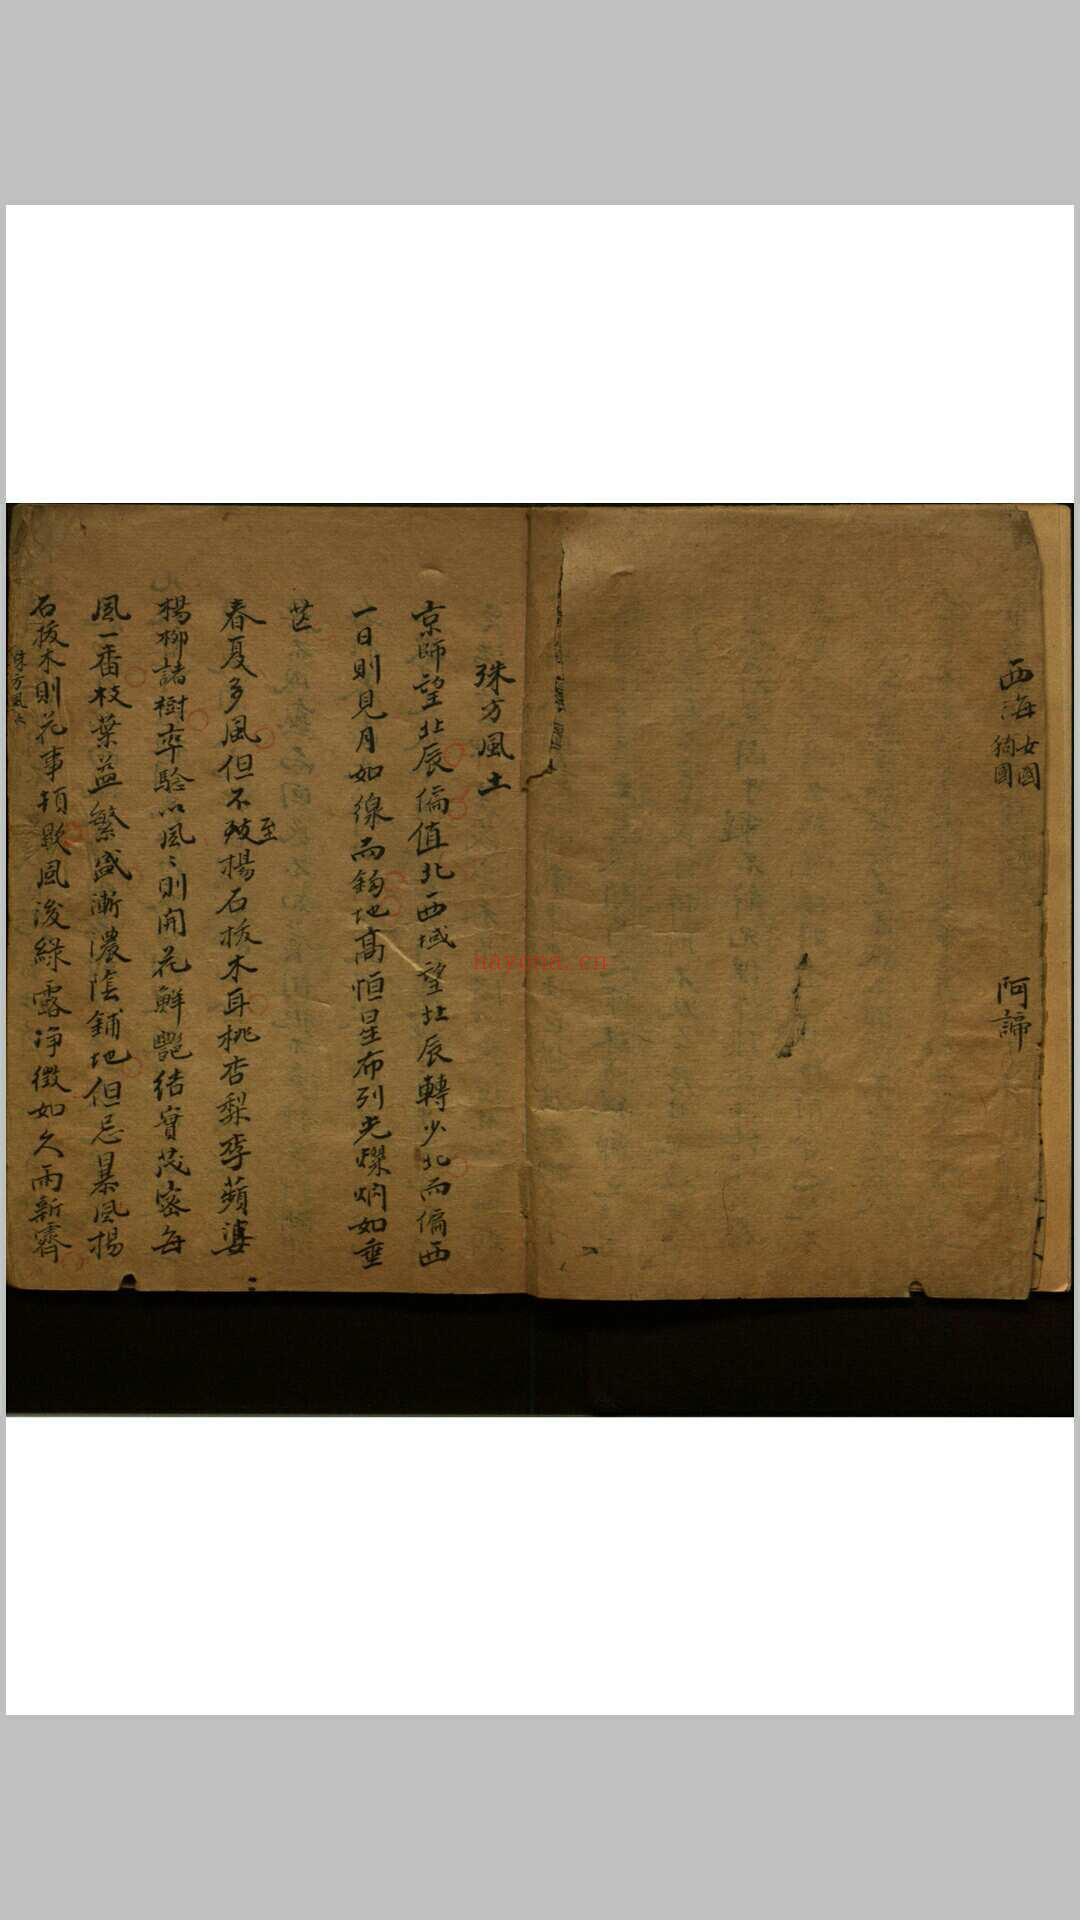 西海 女國 狗國 阿諦
殊方風土
京師望北辰偏值北西域望北辰轉少北而偏西
一日則見月如線而鈎地高恒星布列光燦炯如垂
芒
春夏多風但不至殘楊石拔木耳桃杏梨李蘋婆
楊柳諸樹率驗以風〻則開花鮮艷結實茂密每
風一番枝葉益繁盛漸濃陰鋪地但忌暴風揚
石拔木則花事頓歇風後綠露淨徴如久雨新霽
殊方風
hayona.cn